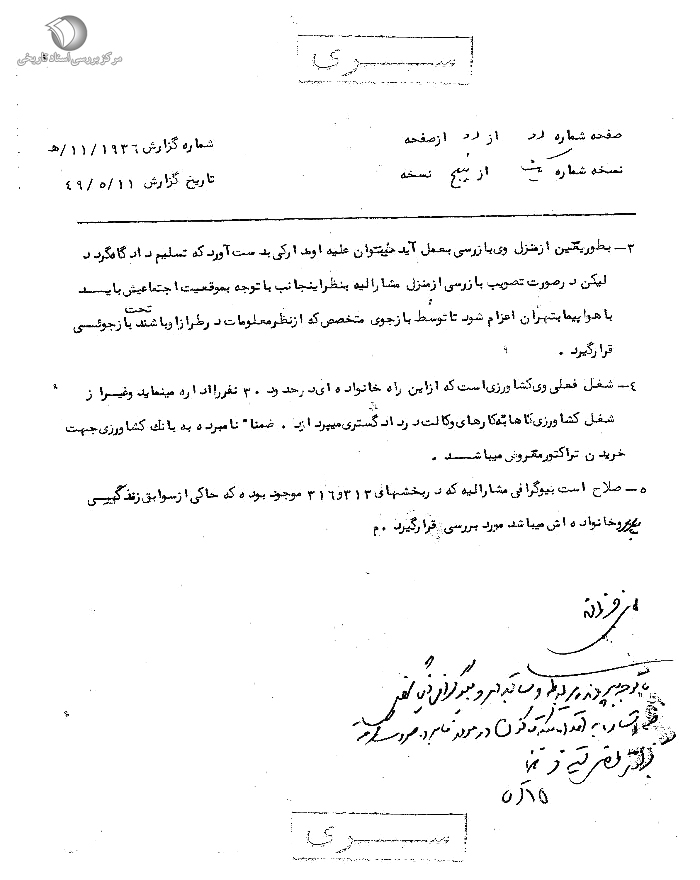 مرکز بررسی اسناد تاریخی
سری
صفحه شماره دو از دو ازصفحه
شماره گزارش ۱۱/۱۹۳۶/ه
نسخه شماره یک از پنج نسخه
تاریخ گزارش ۴۹/۵/۱۱
۳ـ بطوریقین ازمنزل وی بازرسی بعمل آید نمیتوان علیه او مدارکی بدست آورد که تسلیم دادگاه گردد
لیکن درصورت تصویب بازرسی ازمنزل مشارالیه بنظراینجانب با توجه بموقعیت اجتماعیش بایـــد
با هواپیما بتهران اعزام شود تا توسط بازجوی متخصص که ازنظرمعلومات درطرازاوباشند تحت بازجوئـی
قرارگیرد .
۴ـ شغل فعلی وی کشاورزی است که ازاین راه خانواده ای درحدود ۳۰ نفررا اداره مینماید وغیراز
شغل کشاورزی گاها بکارهای وکالت دردادگستری میپردازد . ضمنا" نامبرده به بانک کشاورزی جهت
خریدن تراکتورمقروض میباشـــد .
۵ـ صلاح است بیوگرافی مشارالیه که دربخشهای ۳۱۲و۳۱۶ موجود بوده که حاکی ازسوابق زندگیـــی
وخانواده اش میباشد مورد بررسی قرارگیرد .م
با توجه به پرونده مربوطه و سابقه و بیوگرافی
۱۵/۵
سری